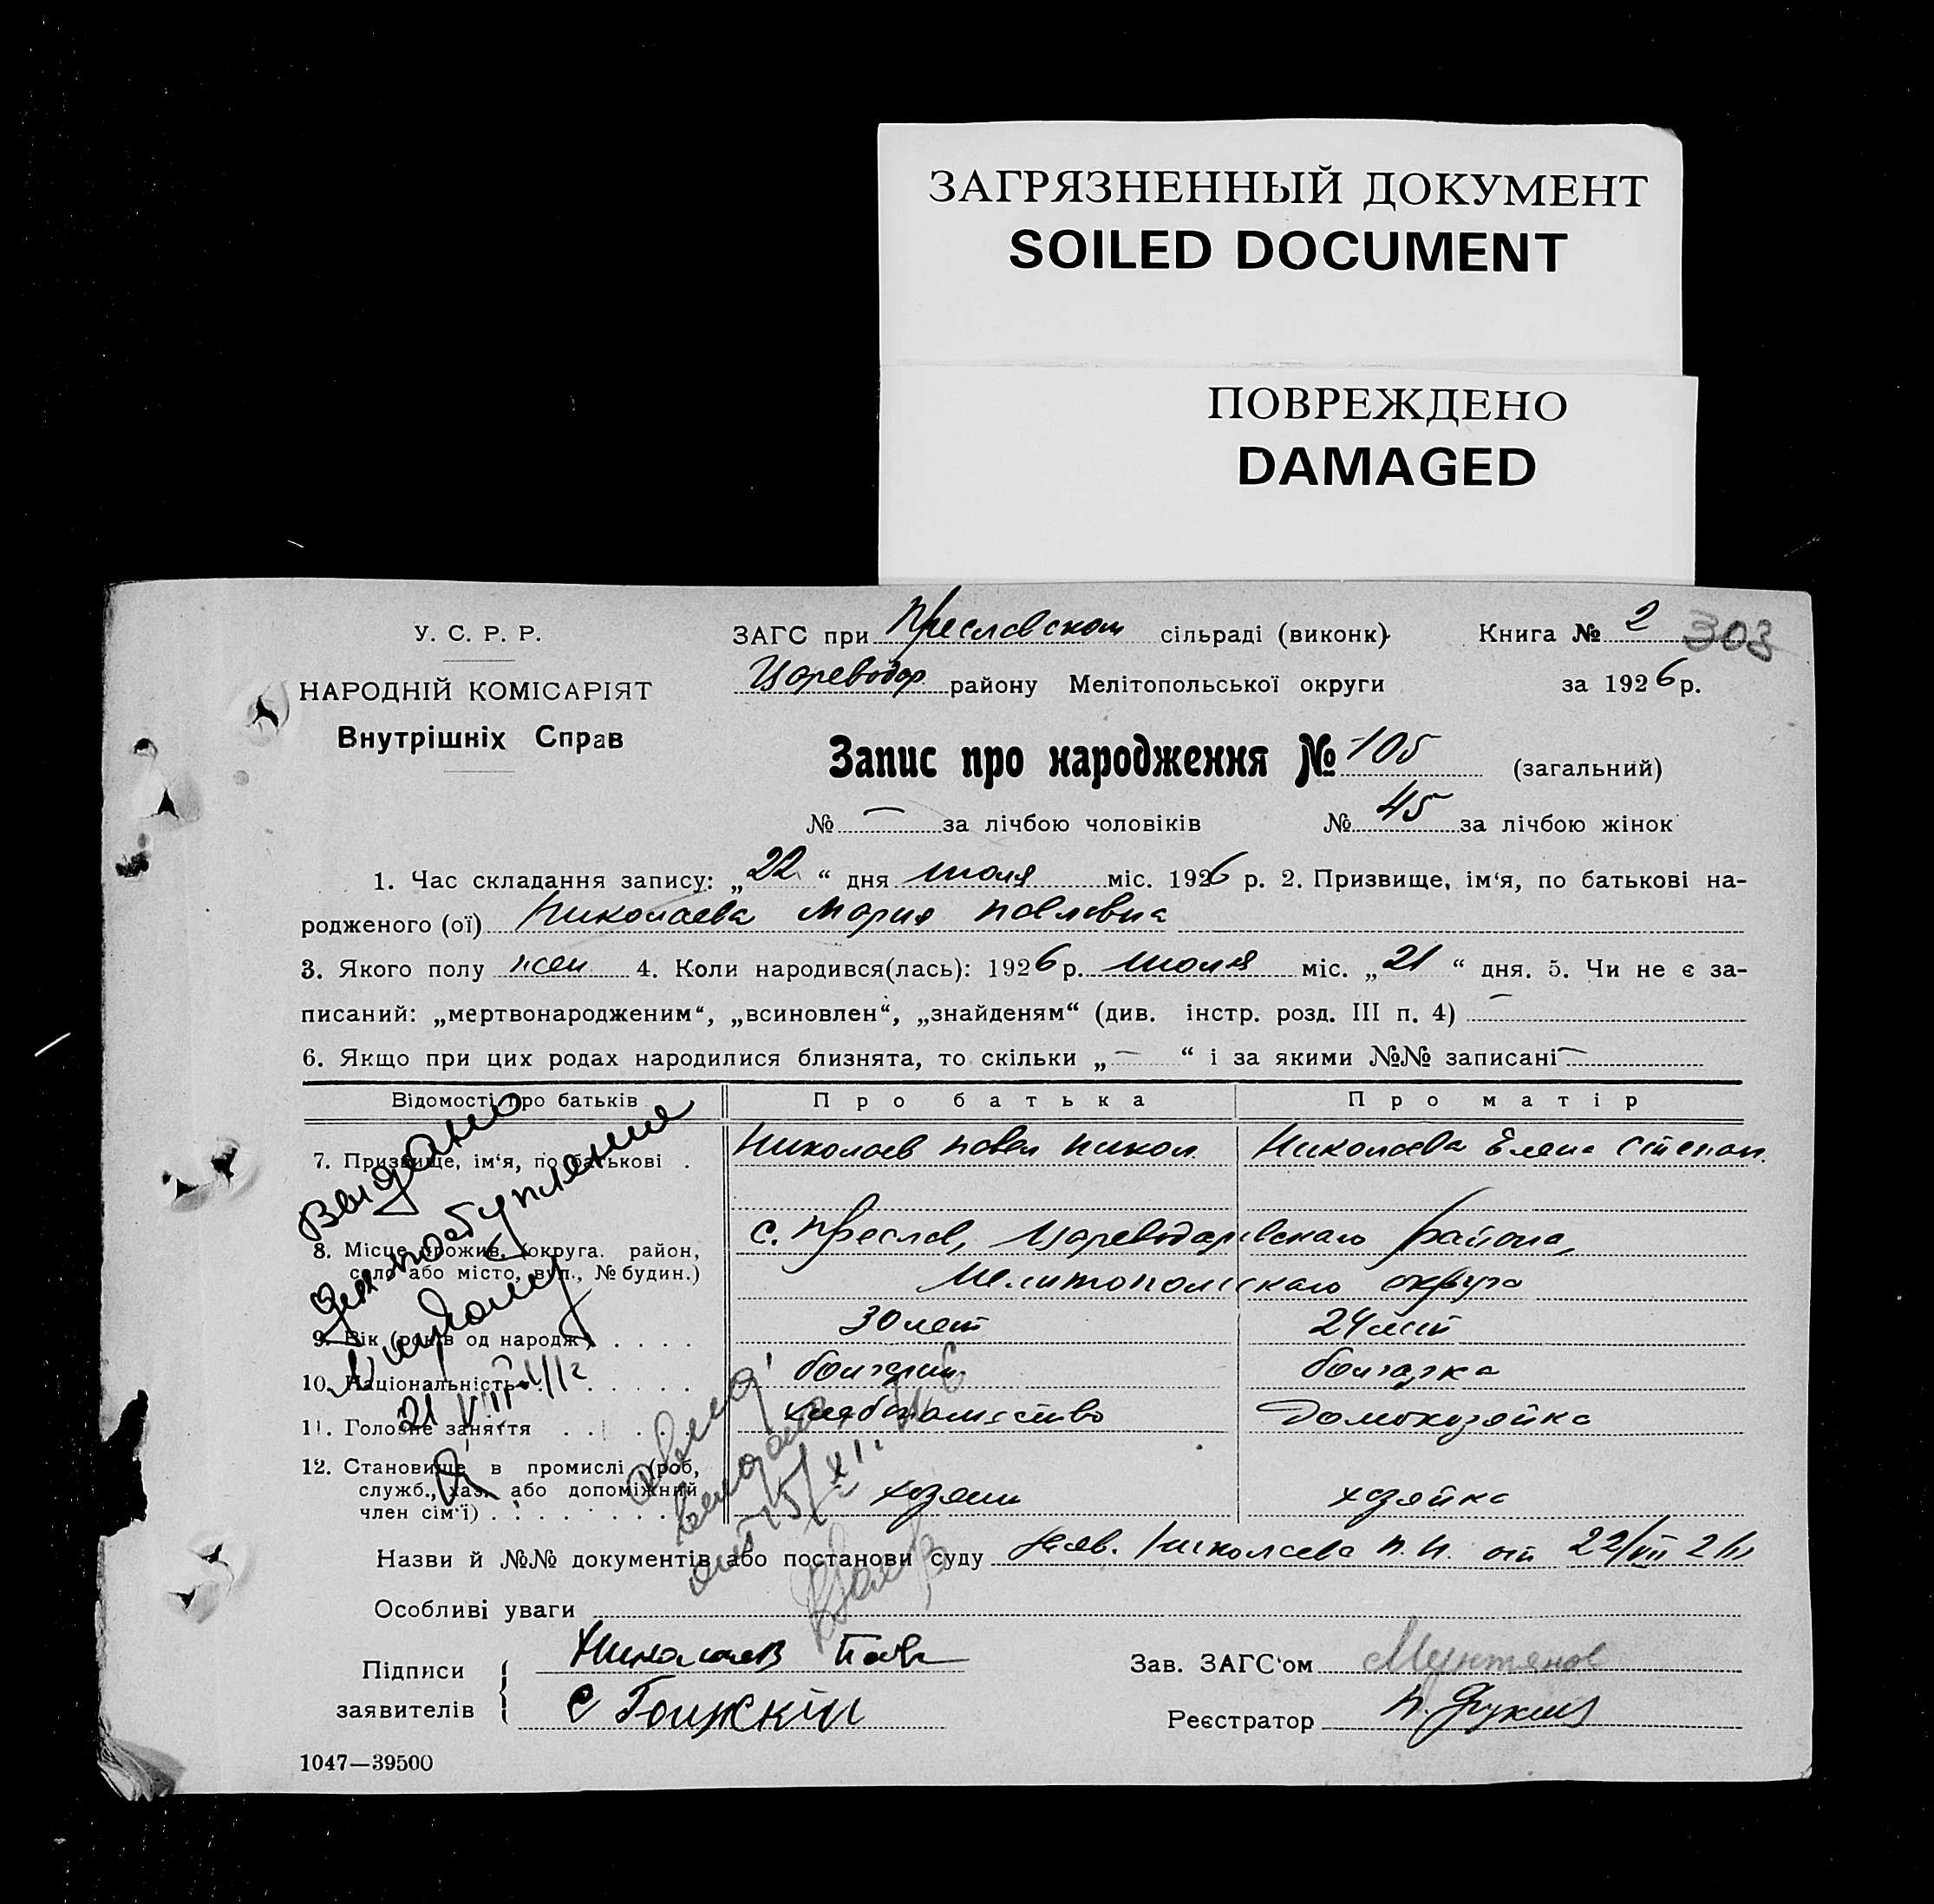 ЗАГРЯЗНЕННЫЙ ДОКУМЕНТ
SOILED DOCUMENT
ПОВРЕЖДЕНО
DAMAGED
У. С. Р. Р.
НАРОДНІЙ КОМІСАРІЯТ
Внутрішніх Справ
ЗАГС при Преславском сільраді (виконк) Книга № 2 303
Цареводар району Мелітопольської округи за 1926 р.
Запис про народження № 105 (загальний)
№ — за лічбою чоловіків № 45 за лічбою жінок
1. Час складання запису: „22“ дня июля міс. 1926 р. 2. Призвище, ім‘я, по батькові на-
родженого (ої) Николаева Мария Павловна
3. Якого полу жен 4. Коли народився(лась): 1926 р. июля міс. „21“ дня. 5. Чи не є за-
писаний: „мертвонародженим“, „всиновлен“, „знайденям“ (див. інстр. розд. III п. 4) —
6. Якщо при цих родах народилися близнята, то скільки „—“ і за якими №№ записані —
Відомості про батьків Про батька Про матір
7. Призвище, ім‘я, по батькові . Николаев Павел Никол. Николаева Елена Степан.
8. Місце прожив. (округа. район, с. Преслав, Цареводаровского района,
село або місто, вул., № будин.) Мелитопольского округа
9. Вік (років од народж) . . . . 30 лет 24 лет
10. Національність . . . . . . болгарин болгарка
11. Головне заняття . . . . . хлебопашество Домохозяйка
12. Становище в промислі (роб,
служб., хаз. або допоміжний хозяин хозяйка
член сім‘ї) . . . . . . . .
Выдано
для поступления
в школу
21 VIII
выдана
15/XI
Назви й №№ документів або постанови суду Заяв. Николаева П. Н. от 22/VII
Особливі уваги
Підписи Николаев Пав Зав. ЗАГС‘ом Мунтянов
заявителів С Гоижкін Реєстратор
1047—39500